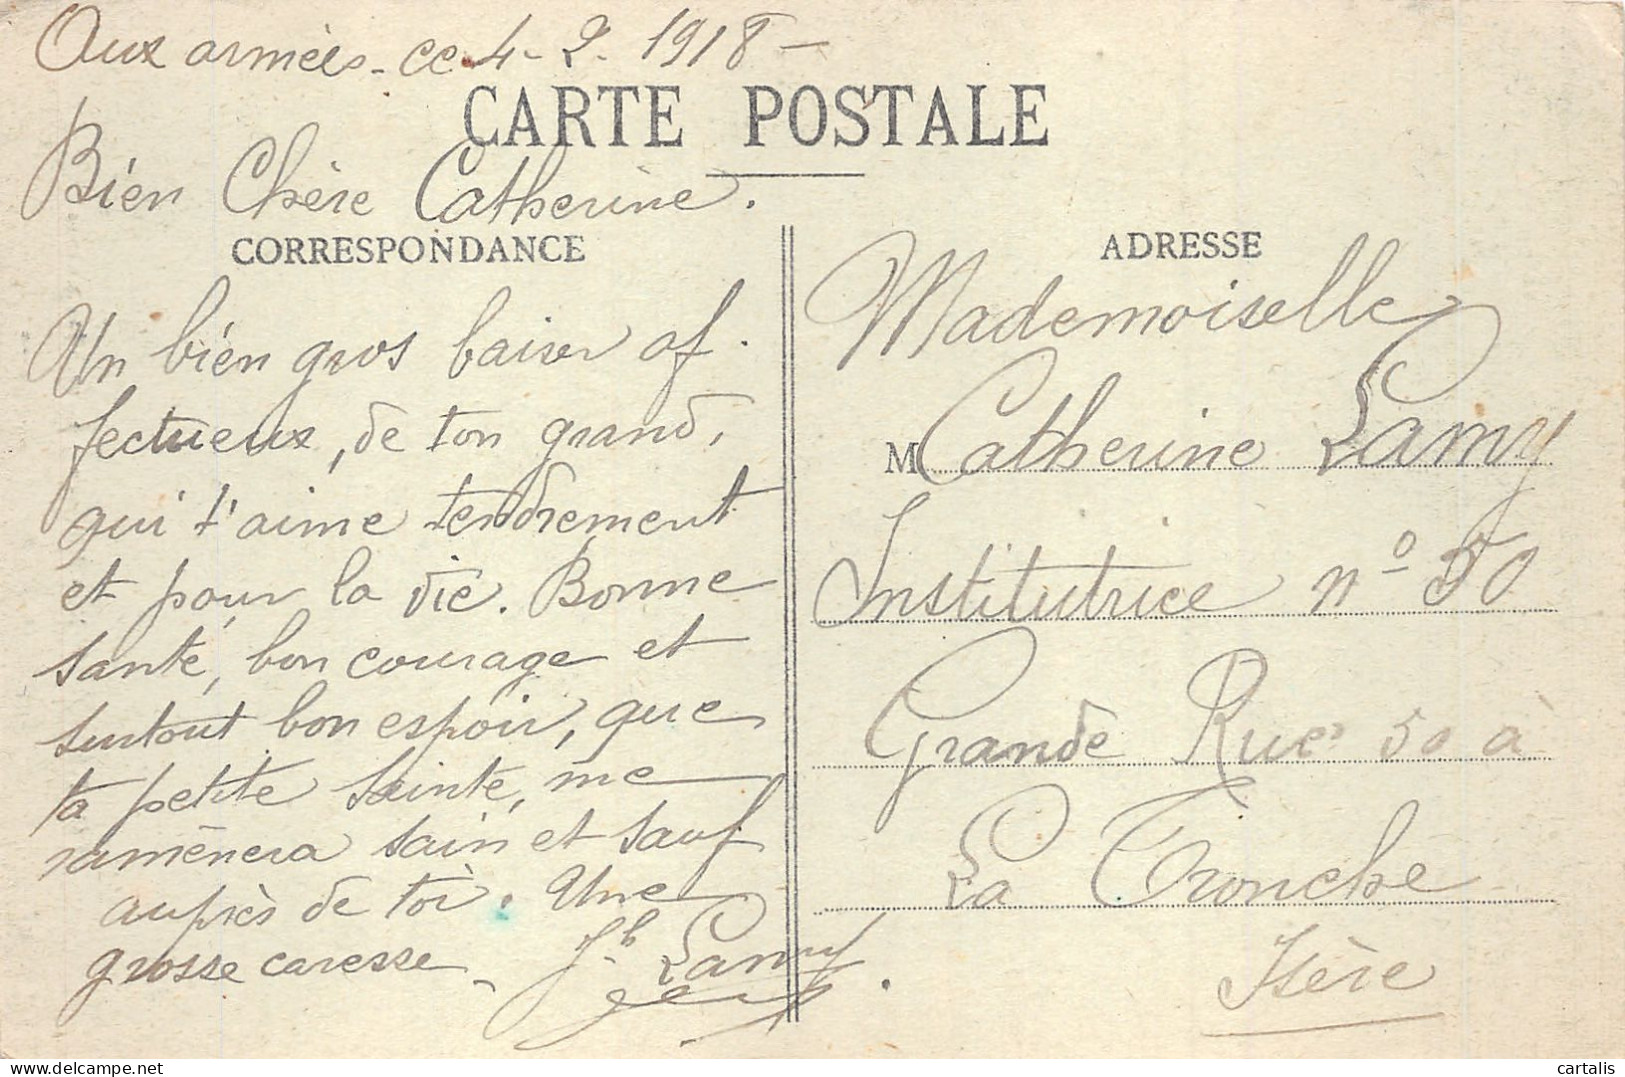 Aux armées - ce 4 - 2 - 1918 -
CARTE POSTALE
Bien Chère Catherine.
CORRESPONDANCE
Un bien gros baiser af-
fectueux, de ton grand,
qui t'aime tendrement
et pour la vie. Bonne
santé, bon courage et
surtout bon espoir, que
ta petite Sainte, me
ramènera sain et sauf
auprès de toi. Une
grosse caresse -
Jh Lamy
ADRESSE
Mademoiselle
M Catherine Lamy
Institutrice n° 50
Grande Rue 50 à
La Tronche
Isère
delcampe.net
cartalis